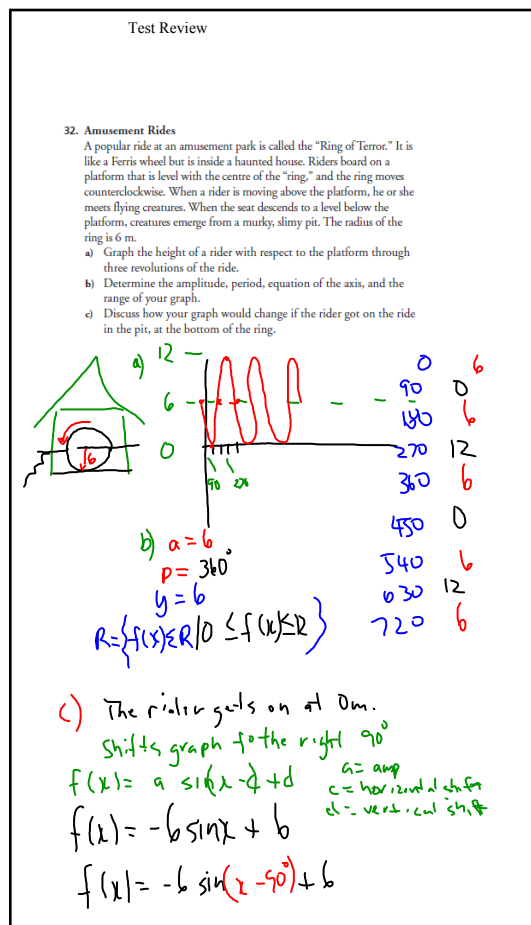 Test Review
32. Amusement Rides
A popular ride at an amusement park is called the “Ring of Terror.” It is
like a Ferris wheel but is inside a haunted house. Riders board on a
platform that is level with the centre of the “ring,” and the ring moves
counterclockwise. When a rider is moving above the platform, he or she
meets flying creatures. When the seat descends to a level below the
platform, creatures emerge from a murky, slimy pit. The radius of the
ring is 6 m.
a) Graph the height of a rider with respect to the platform through
three revolutions of the ride.
b) Determine the amplitude, period, equation of the axis, and the
range of your graph.
c) Discuss how your graph would change if the rider got on the ride
in the pit, at the bottom of the ring.
a)
12
6
0
6
90 270
0 6
90 0
180 6
270 12
360 6
450 0
540 6
630 12
720 6
b) a = 6
p = 360°
y = 6
R = {f(x) ∈ R | 0 ≤ f(x) ≤ 12}
c) The rider gets on at 0m.
Shifts graph to the right 90°
f(x) = a sin(x - c) + d
a = amp
c = horizontal shift
d = vertical shift
f(x) = -6 sinx + 6
f(x) = -6 sin(x - 90°) + 6